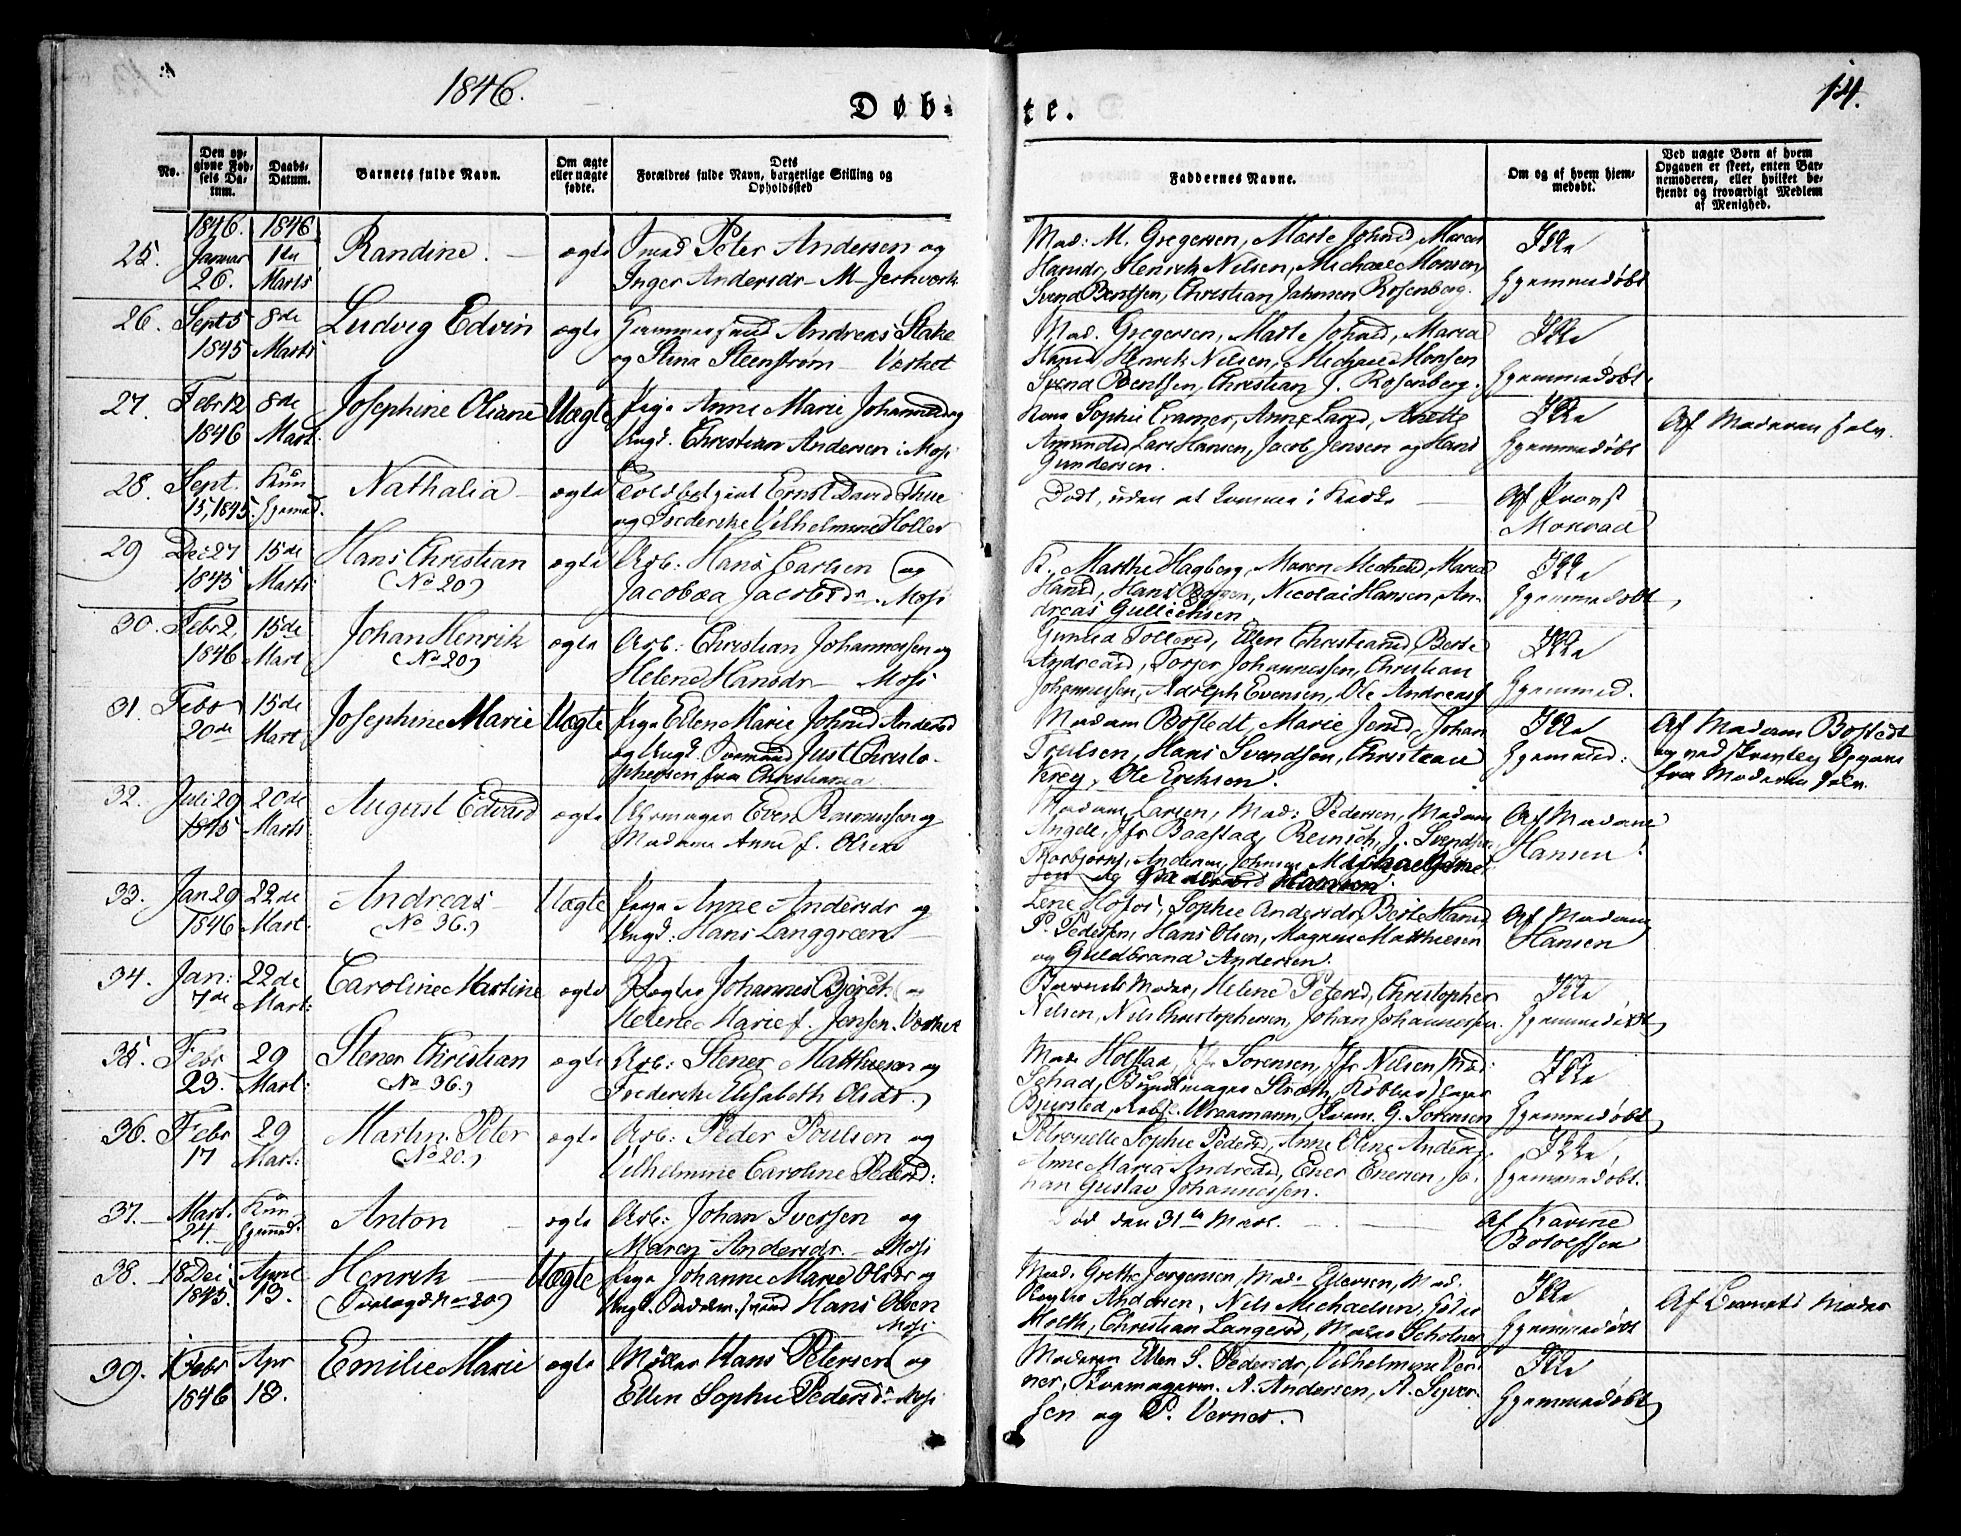 1846.
Døb-
te.
14.
No.
Den op-
givne Fød-
sels Da-
tum.
Daabs-
Datum.
Barnets fulde Navn.
Om ægte
eller uægte
fødte.
Dets
Forældres fulde Navn, borgerlige Stilling og
Opholdssted
Faddernes Navne.
Om og af hvem hjem-
medøbt.
Ved uægte Børn af hvem
Opgaven er skeet, enten Bar-
nemoderen, eller hvilket be-
kjendt og troværdigt Medlem
af Menighed.
1846. 1846
25. Januar 1ste Randine. ægte Smed Peter Andersen og
26. Marts Inger Andersdr - M- Jernverk
Mad: M. Gregersen, Marte Johnsd, Maren
Hansdr, Henrik Nilsen, Michael Monsen,
Svend Berntsen, Christian Jahnsen Rosenberg.
Ikke
hjemmedøbt
26. Sept 5 8de Ludvig Edvin ægte Hammersmed Andreas Stake
1845 Marts og Stina Steenstrøm - Værket
Mad. Gregersen, Marte Johnsd, Maria
Hansd Henrik Nilsen, Michael Monsen
Svend Berntsen, Christian J. Rosenberg.
Ikke
hjemmedøbt.
27. Febr 12 8de Josephine Oliane Uægte Pige Anne Marie Johannesd og
1846 Mart: Ungk. Christian Andersen i Moss
Sophie Cramer, Anne Larsd, Anette
Amundsd, Lars Hansen, Jacob Jensen og Hans
Gundersen.
Ikke
hjemmedøbt
Af Moderen selv.
28. Sept. Kun Nathalia - ægte Toldbetjent Ernst David Thue
15, 1845. hjemmed. og Frederike Vilhelmine Møller
Død, uden at komme i Kirke
Af Provst
Monrad
29 Dec 27 15de Hans Christian ægte Arb: Hans Carlsen og
1845 Marts (No 20) Jacobea Jacobsdr. Moss
F., Marthe Hagberg, Maren Michelsd, Maria
Hansd, Hans Boysen, Nicolai Hansen, An-
dreas Gullichsen
Ikke
hjemmedøbt,
30. Febr 2, 15de Johan Henrik ægte Arb: Christian Johannessen og
1846 Mart (No 20) Helene Hansdr - Moss
Gunild Tollevsd, Ellen Christiansd, Berte
Andreasd, Torjer Johannessen, Christian
Johannessen, Adolph Evensen, Ole Andreas
Ikke
hjemmed.
31. Febr 15de Josephine Marie Uægte Pige Ellen Marie Johnsd Andersd
20de Mart og Ungk. Sømand Just Christo-
phersen fra Christiania
Madam Bostedt, Marie Jensd, Johan
Poulsen, Hans Svendsen, Christian
Krey, Ole Eriksen.
Ikke
hjemmed:
Af Madam Bostedt
og ved skriftlig Opgave
fra Moderen selv.
32. Juli 29 20de August Edvard ægte Uhrmager Even Rasmussen og
1845 Marts Madame Anne f. Olsen
Madam Larsen, Mad: Pedersen, Madam
Angell, Jfr Baastad, Reinsch, J. Svendsen
Thorbjørns, Andersen, Johnsen
Af Madame
Hansen
33. Jan 29 22de Andreas Uægte Pige Anne Andersdr og
1846 Mart: (No 36.) Ungk: Hans Langgreen
Lene Sophie Andersdr, Berte Hansd,
P. Pedersen, Hans Olsen, Magnus Matthiesen
og Guldbrand Andersen.
Af Madam
Hansen
34. Jan: 22de Caroline Martine ægte Røgter Johannes Bjøret. og
7de Mart: Helene Marie f. Jensen. Værket
Barnets Moder, Helene Petersd, Christopher
Nilsen, Nils Christophersen, Johan Johannessen.
Ikke
hjemmedøbt
35. Febr 29 Stener Christian ægte Arb: Stener Matthiesen og
23. Mart: (No 36.) Frederike Elisabeth Olsdr.
Mad: Holstad, Jfr Sørensen, Jfr Nilsen Mad:
Schad, Bundtmager Strøth, Kobberslager
Bjersted, Kvam. G. Sørensen
Ikke
hjemmedøbt
36. Febr 29 Martin Peter ægte Arb: Peder Poulsen og
17 Mart: (No 20.) Vilhelmine Caroline Pedersd:
Petronelle Sophie Pedersd, Anne Oline Andersd,
Anne Maria Andreasd, Ener Enersen, Jo-
han Gustav Johannessen.
Ikke
hjemmedøbt.
37. Mart. Kun Anton - ægte Arb: Johan Iversen og
24. hjemmed: Maren Andersdr. - Moss
Død den 31te Mart.
Af Karine
Botolfsen
38. 18 Dec April Henrik - Uægte Pige Johanne Marie Olsdr og
1845. 13. Ungk. Hans Olsen
Moss
Mad. Grethe Jørgensen, Mad: Ellefsen, Mad.
Andersen, Nils Michaelsen,
Holth, Christian Langerød,
Ikke
hjemmedøbt
Af Barnets Moder
39. 1 Febr Apr Emilie Marie ægte Møller Hans Petersen og
1846 13. Ellen Sophie Pedersdr. Moss
Moderen Ellen S. Pedersdr, Vilhelmine Ver-
ner, A. Andersen, A. Syver-
sen og P. Verner.
Ikke
hjemmedøbt